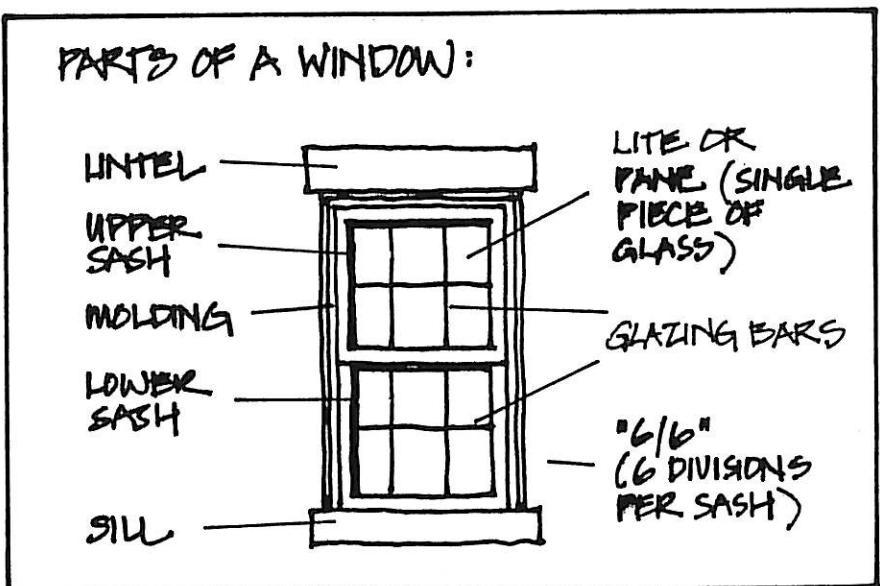 PARTS OF A WINDOW:
LINTEL
UPPER
SASH
MOLDING
LOWER
SASH
SILL
LITE OR
PANE (SINGLE
PIECE OF
GLASS)
GLAZING BARS
"6/6"
(6 DIVISIONS
PER SASH)